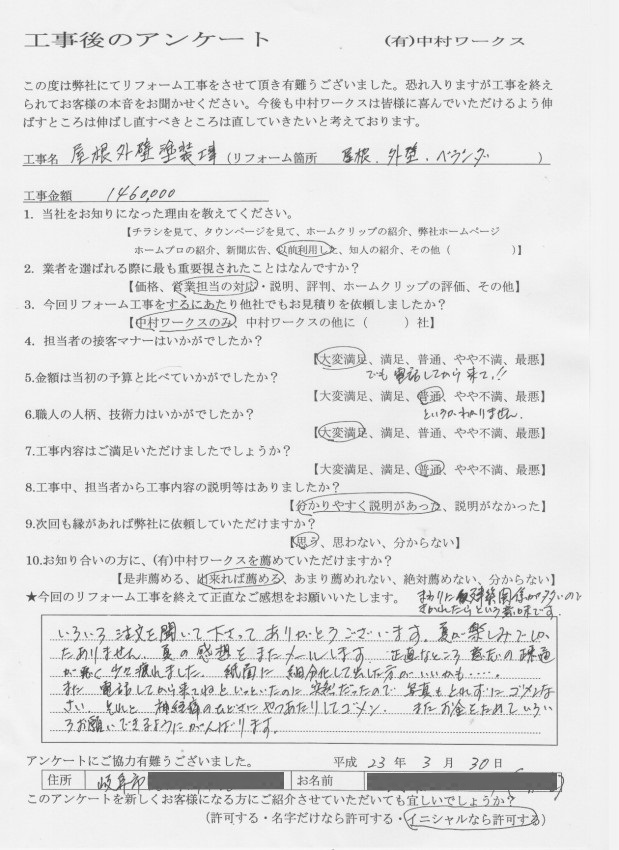 工事後のアンケート (有)中村ワークス
この度は弊社にてリフォーム工事をさせて頂き有難うございました。恐れ入りますが工事を終え
られてお客様の本音をお聞かせください。今後も中村ワークスは皆様に喜んでいただけるよう伸
ばすところは伸ばし直すべきところは直していきたいと考えております。
工事名 屋根外壁塗装工事 (リフォーム箇所 屋根、外壁、ベランダ )
工事金額 1460,000
1. 当社をお知りになった理由を教えてください。
【チラシを見て、タウンページを見て、ホームクリップの紹介、弊社ホームページ
ホームプロの紹介、新聞広告、以前利用した、知人の紹介、その他( )】
2. 業者を選ばれる際に最も重要視されたことはなんですか?
【価格、営業担当の対応・説明、評判、ホームクリップの評価、その他】
3. 今回リフォーム工事をするにあたり他社でもお見積りを依頼しましたか?
【中村ワークスのみ、中村ワークスの他に( )社】
4. 担当者の接客マナーはいかがでしたか?
【大変満足、満足、普通、やや不満、最悪】
でも電話してから来て!!
5.金額は当初の予算と比べていかがでしたか?
【大変満足、満足、普通、やや不満、最悪】
というかわかりません。
6.職人の人柄、技術力はいかがでしたか?
【大変満足、満足、普通、やや不満、最悪】
7.工事内容はご満足いただけましたでしょうか?
【大変満足、満足、普通、やや不満、最悪】
8.工事中、担当者から工事内容の説明等はありましたか?
【分かりやすく説明があった、説明がなかった】
9.次回も縁があれば弊社に依頼していただけますか?
【思う、思わない、分からない】
10.お知り合いの方に、(有)中村ワークスを薦めていただけますか?
【是非薦める、出来れば薦める、あまり薦めれない、絶対薦めない、分からない】
★今回のリフォーム工事を終えて正直なご感想をお願いいたします。 まわりに建築関係が多いので
きかれたらという意味です。
いろいろ注文を聞いて下さってありがとうございます。夏が楽しみでしか
たありません。夏の感想をまたメールします 正直なところ意志の疎通
が悪く少々疲れました。紙面に細分化して出した方がいいかも・・・・。
また 電話してから来てねといっといたのに突然だったので写真もとれずにゴメンな
さい。それと 神経痛のひどさにやつあたりしてゴメン。 またお金をためていろい
ろお願いできるようにがんばります。
アンケートにご協力有難うございました。 平成 23 年 3 月 30 日
住所 岐阜市 お名前
このアンケートを新しくお客様になる方にご紹介させていただいても宜しいでしょうか?
(許可する・名字だけなら許可する・イニシャルなら許可する)